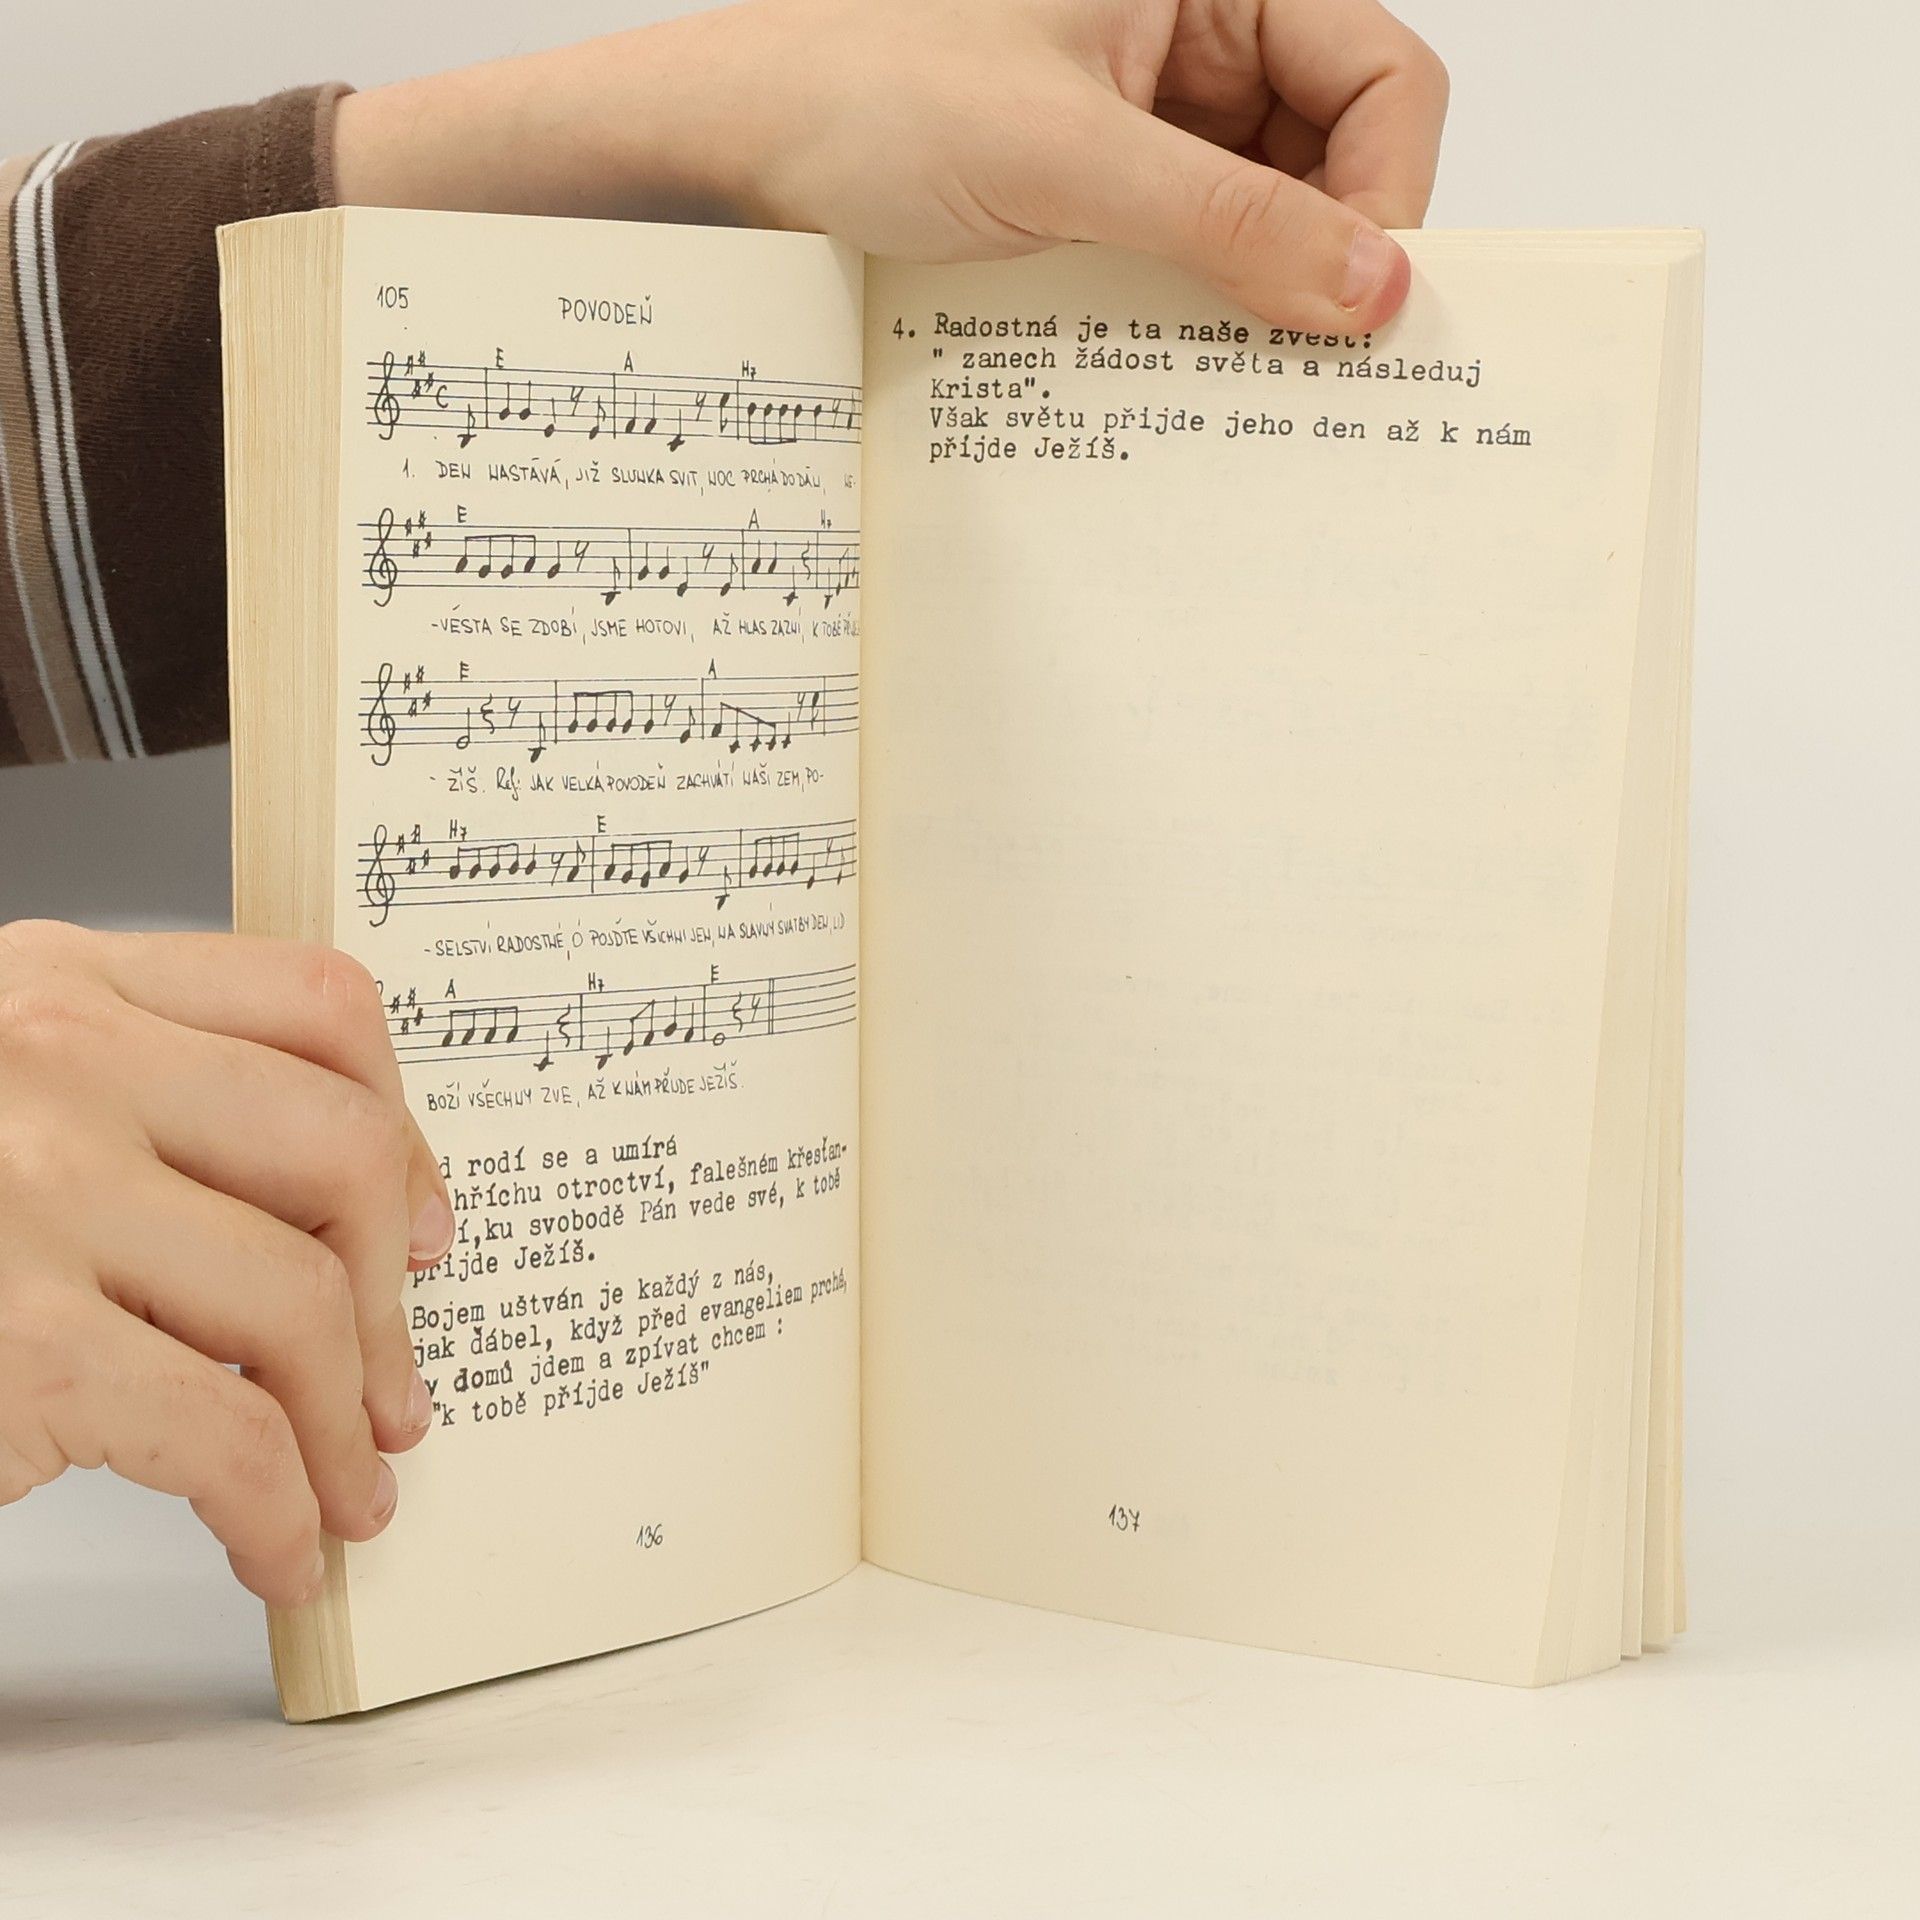 105
POVODEŇ
E A H7
C
1. DEN NASTÁVÁ, JIŽ SLUNKA SVIT, NOC PRCHÁ DO DÁLI, NE-
E A H7
-VĚSTA SE ZDOBÍ, JSME HOTOVI, AŽ HLAS ZAZNÍ, K TOBĚ
E A
- ŽÍŠ. Ref: JAK VELKÁ POVODEŇ ZACHVÁTÍ NAŠI ZEM, PO-
H7 E
-SELSTVÍ RADOSTNÉ, Ó POJĎTE VŠICHNI JEN, NA SLAVNÝ SVATBY DEN, LID
A H7 E
BOŽÍ VŠECHNY ZVE, AŽ K NÁM PŘIJDE JEŽÍŠ.
d rodí se a umírá
hříchu otroctví, falešném křesťan-
í,ku svobodě Pán vede své, k tobě
přijde Ježíš.
Bojem uštván je každý z nás,
jak ďábel, když před evangeliem prchá,
y domů jdem a zpívat chcem :
"k tobě příjde Ježíš"
136
4. Radostná je ta naše zvěst:
" zanech žádost světa a následuj
Krista".
Však světu přijde jeho den až k nám
příjde Ježíš.
137